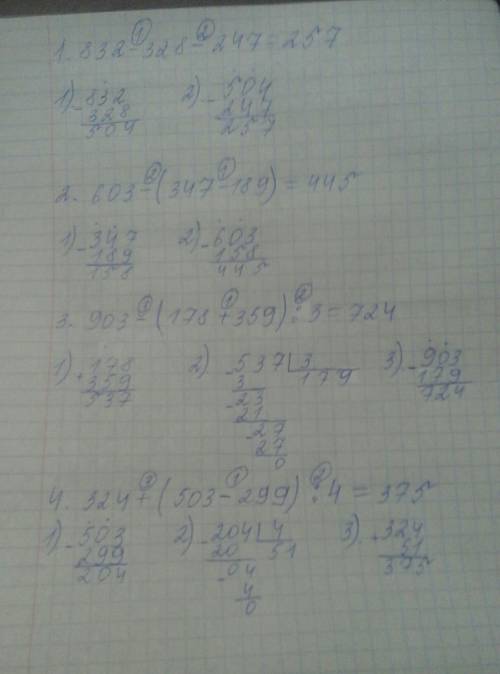 1. 832 - 328 - 247 = 257
1) - 832 2) - 504
328 247
504 257
2. 603 - (347 - 189) = 445
1) - 347 2) - 603
189 158
158 445
3. 903 - (178 + 359) : 3 = 724
1) + 178 2) - 537 | 3 3) - 903
359 3 179 179
537 - 23 724
21
- 27
27
0
4. 324 + (503 - 299) : 4 = 375
1) - 503 2) - 204 | 4 3) + 324
299 20 51 51
204 - 04 375
4
0